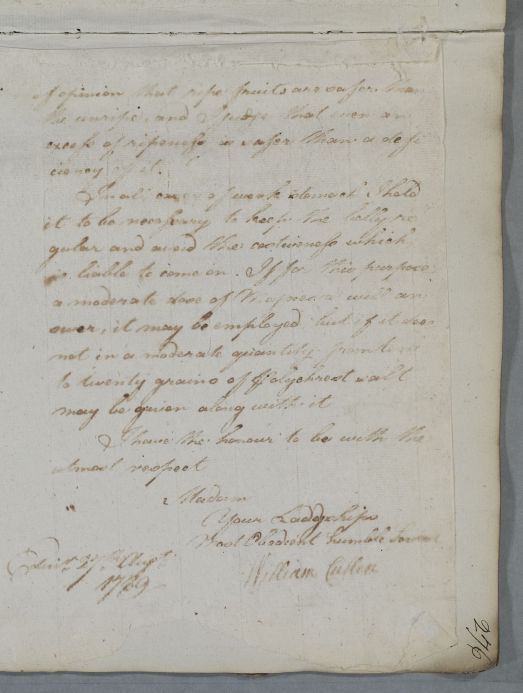 of opinion that ripe fruits are safer than
the unripe, and I judge that even an
excess of ripeness is safer than a defi
ciency of it.
In all cases of weak stomach I hold
it to be necessary to keep the belly re
gular and avoid the costiveness which
is liable to come on. If for this purpose
a moderate dose of Magnesia will an
swer, it may be employed but if it does
not in a moderate quantity, from ten
to twenty grains of Polychrest salt
may be given along with it
I have the honour to be with the
utmost respect
Madam
Your Ladyships
Most Obedient humble Servant
Edinr 27th Augt
1789
William Cullen
246